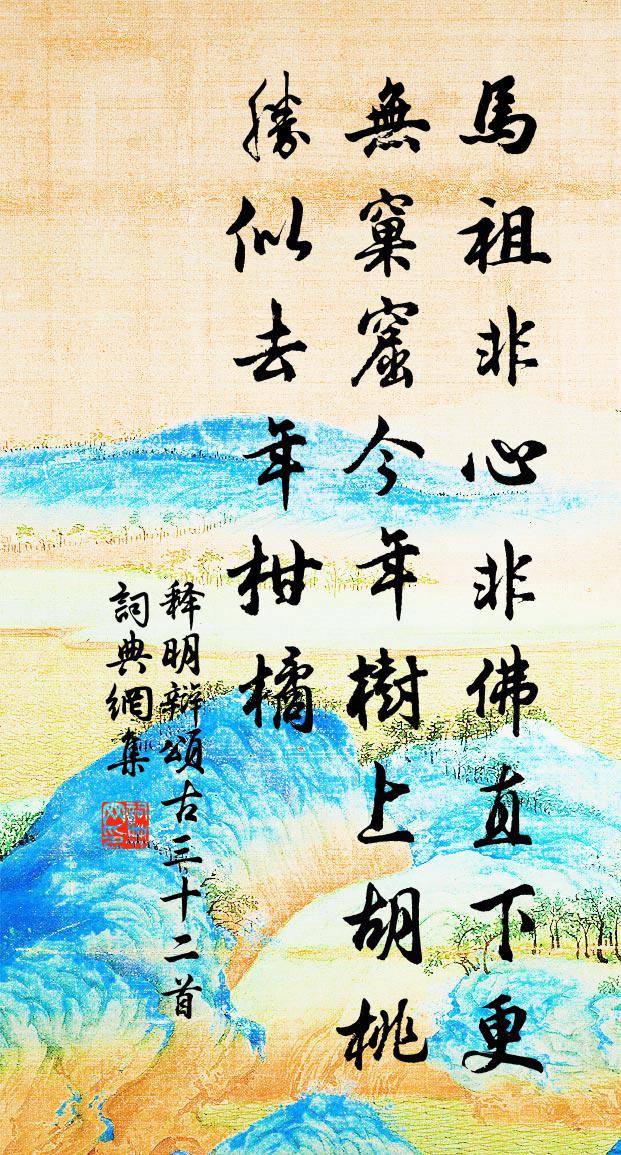 馬祖非心非佛直下更
無窠窟今年樹上胡桃
勝似去年柑橘
释明辯頌古三十二首
詞典網集